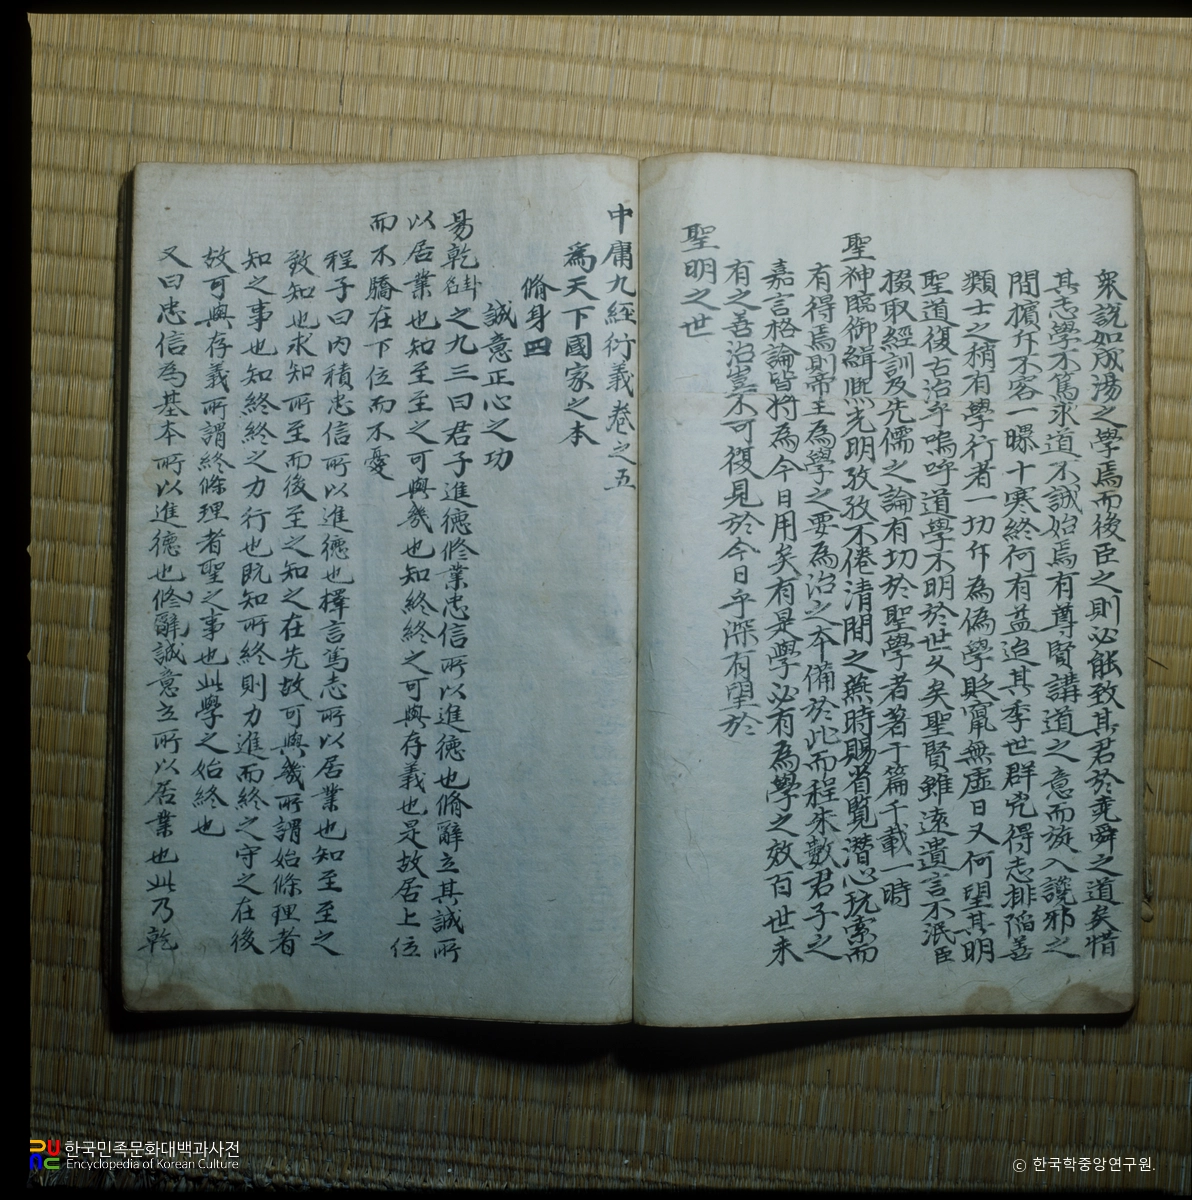 衆說如成湯之學焉而後臣之則必能致其君於堯舜之道矣惜
其志學不篤求道不誠始焉有尊賢講道之意而旋入讒邪之
間擯斥不容一曝十寒終何有益迨其季世群兇得志排陷善
類士之稍有學行者一切斥為偽學貶竄無虛日又何望其明
聖道復古治乎嗚呼道學不明於世久矣聖賢雖遠遺言不泯臣
掇取經訓及先儒之論有切於聖學者著于篇千載一時
聖神臨御緝熙光明孜孜不倦清間之燕時賜省覽潛心玩索而
有得焉則帝王為學之要為治之本備於此而程朱數君子之
嘉言格論皆將為今日用矣有是學必有為學之效百世未
有之善治豈不可復見於今日乎深有望於
聖明之世
中庸九經衍義卷之五
為天下國家之本
脩身四
誠意正心之功
易乾卦之九三曰君子進德修業忠信所以進德也脩辭立其誠所
以居業也知至至之可與幾也知終終之可與存義也是故居上位
而不驕在下位而不憂
程子曰內積忠信所以進德也擇言篤志所以居業也知至至之
致知也求知所至而後至之知之在先故可與幾所謂始條理者
知之事也知終終之力行也既知所終則力進而終之守之在後
故可與存義所謂終條理者聖之事也此學之始終也
又曰忠信為基本所以進德也修辭誠意立所以居業也此乃乾
한국민족문화대백과사전
Encyclopedia of Korean Culture
© 한국학중앙연구원.